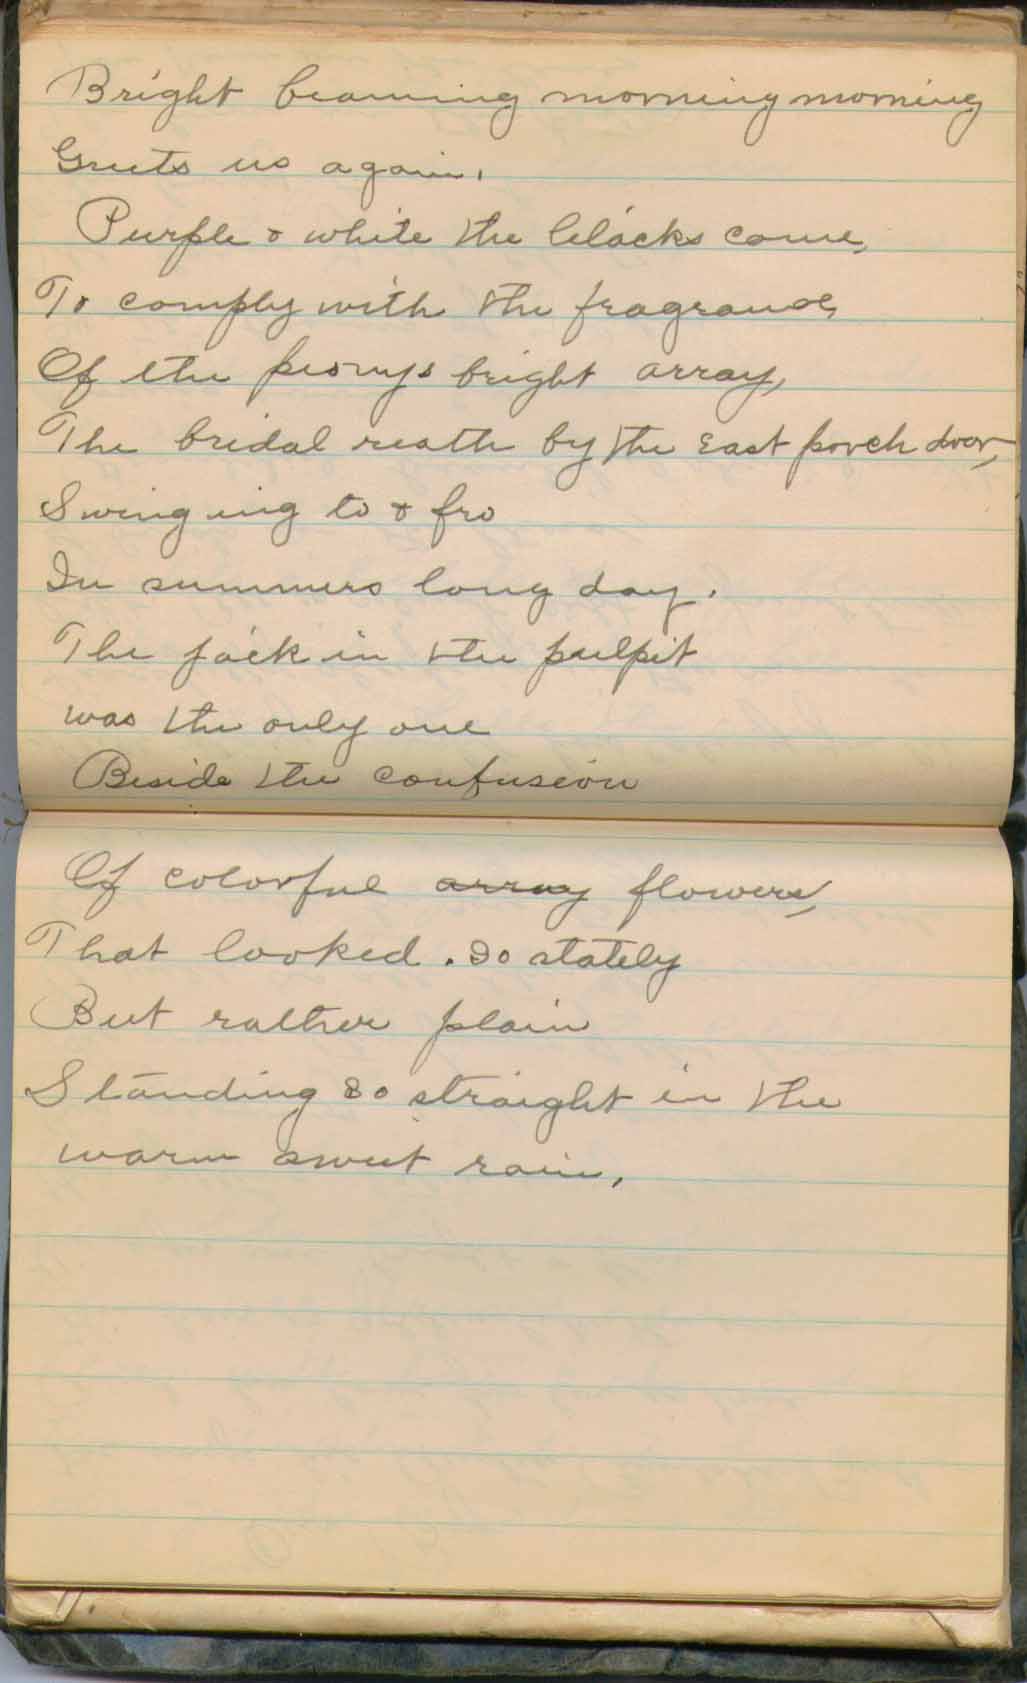 Bright beaming morning morning
Greets us again.
Purple & white the lilacks come,
To comply with the fragrance,
Of the peonys bright array,
The bridal reath by the East porch door,
Swinging to & fro
In summers long day.
The jack in the pulpit
was the only one
Beside the confusion
Of colorful array flowers,
That looked. So stately
But rather plain
Standing so straight in the
warm sweet rain.